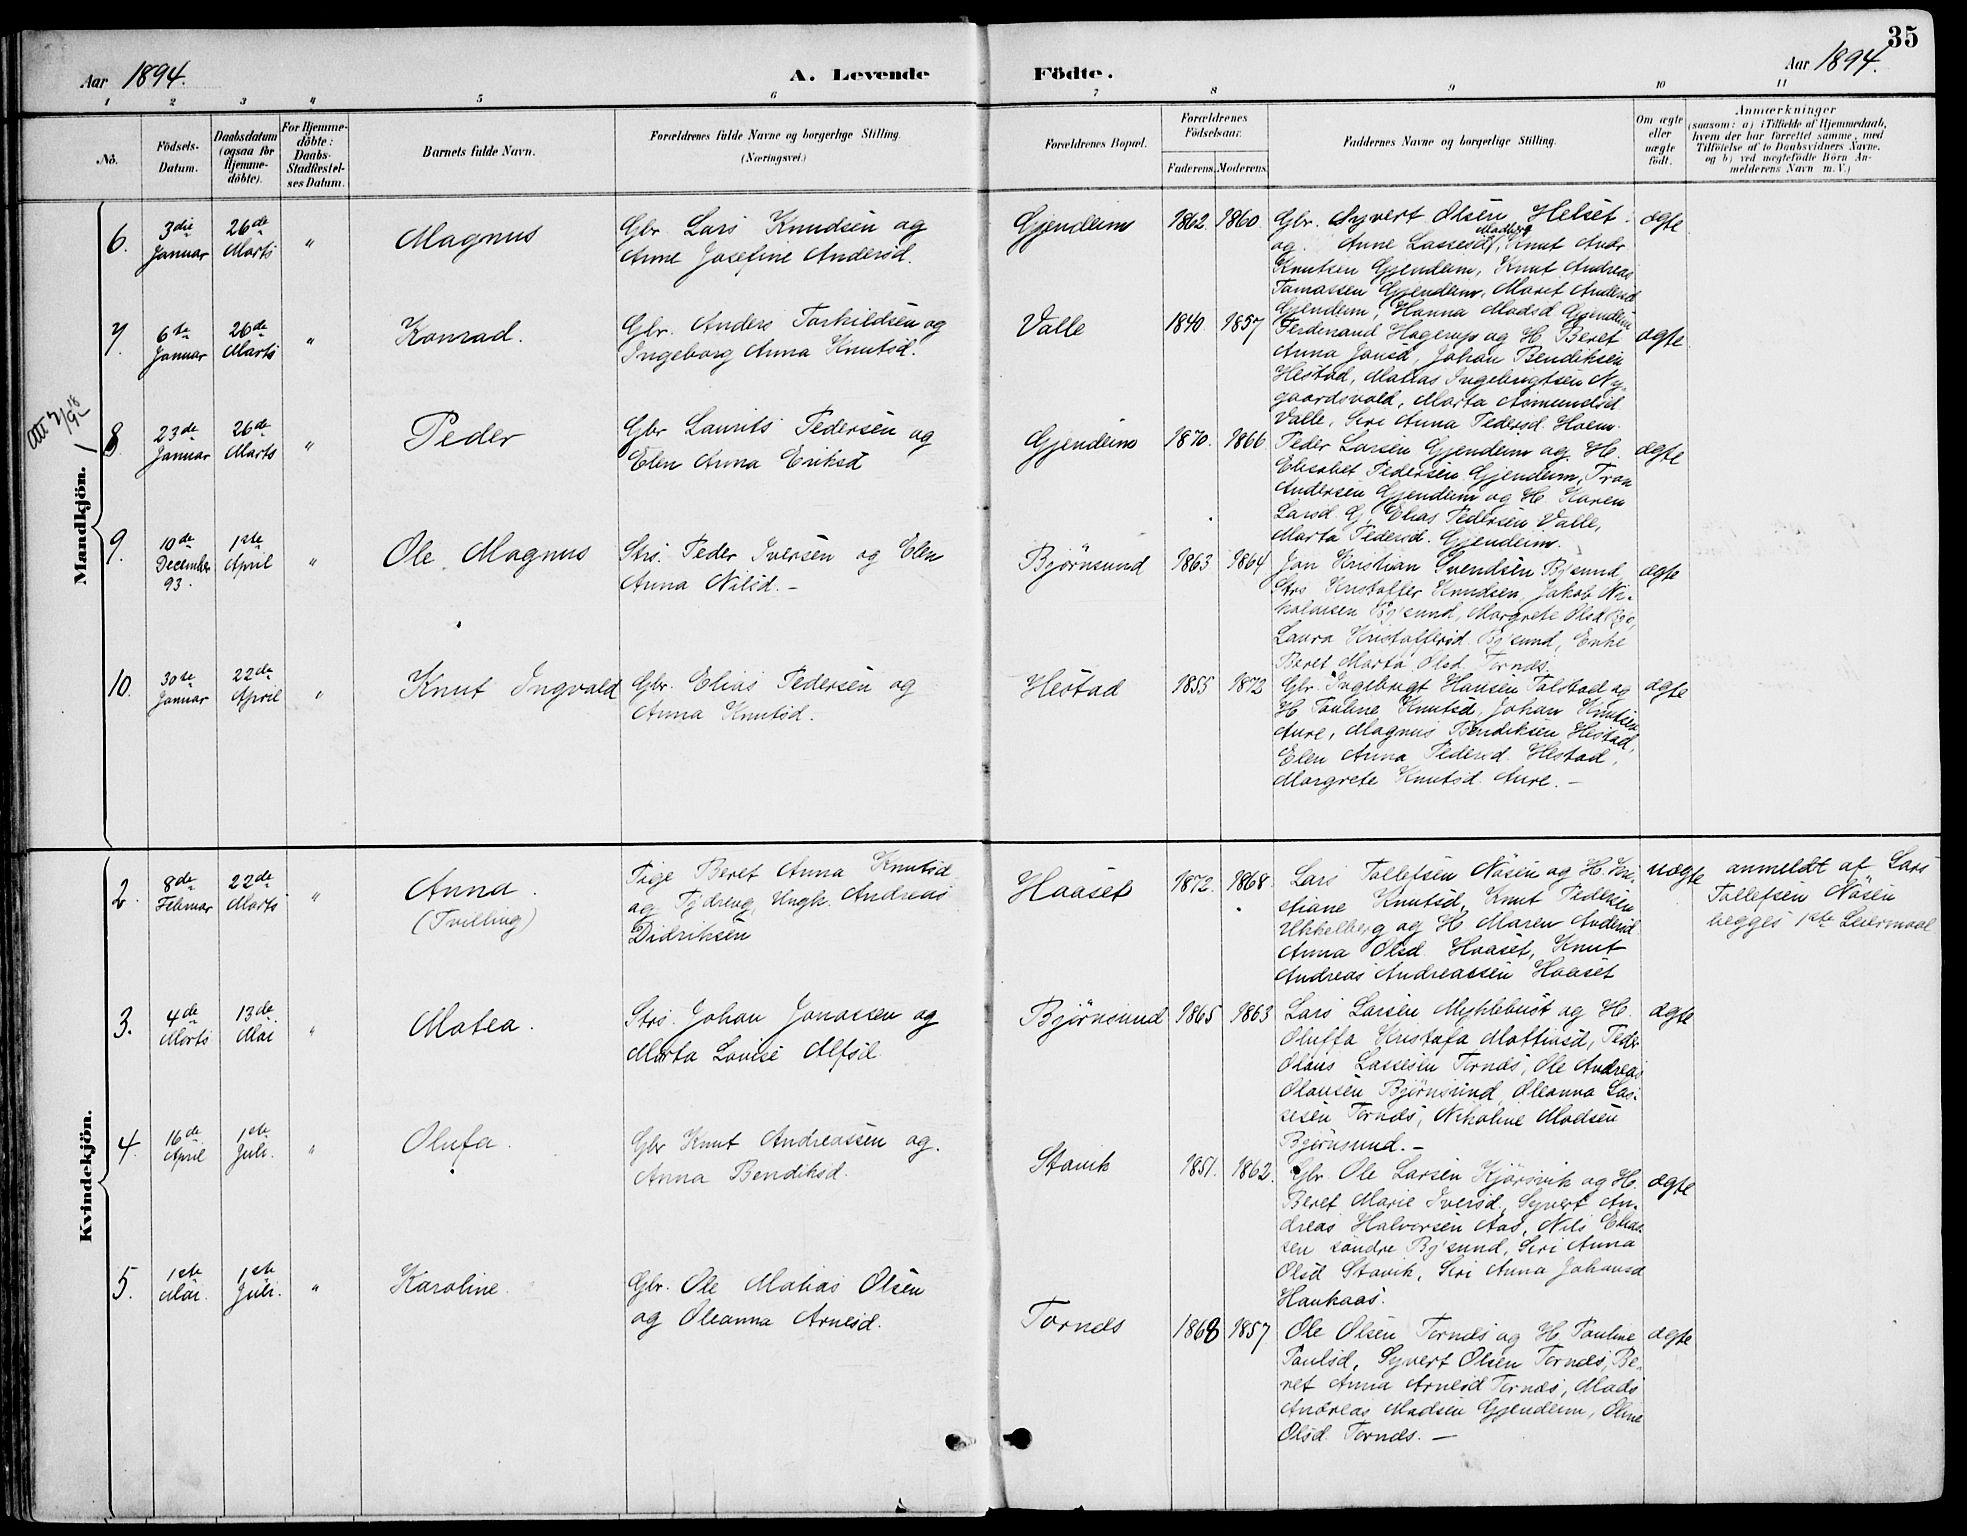 35
Aar 1894.
A. Levende
Födte.
Aar 1894.
1 2 3 4 5 6 7 8 9 10 11
No.
Födsels-
Datum.
Daabsdatum
(ogsaa for
Hjemme-
döbte).
For Hjemme-
döbte:
Daabs-
Stadfæstel-
ses Datum.
Barnets fulde Navn.
Forældrenes fulde Navne og borgerlige Stilling.
(Næringsvei.)
Forældrenes Bopæl.
Forældrenes
Födselsaar.
Faderens. Moderens.
Faddernes Navne og borgerlige Stilling.
Om ægte
eller
uægte
født.
Anmærkninger
(saasom: a) i Tilfælde af Hjemmedaab,
hvem der har forrettet samme, med
Tilföielse af to Daabsvidners Navne,
og b) ved uægtefödte Börn An-
melderens Navn m. V.)
Mandkjön.
6.
3die
Januar
26de
Marts
"
Magnus
Gbr. Lars Knudsen og
Anne Josefine Andersd.
Gjendeim
1862. 1860.
Gbr. Syvert Olsen Helset
og Anne Lassesd, Knut Andr.
Knutsen Gjendeim, Knut Andreas
Tomassen Gjendeim, Marit Andersd
Gjendeim, Hanna Madsd Gjendeim
ægte
7.
6te
Januar
26de
Marts
"
Konrad.
Gbr. Anders Torkildsen og
Ingeborg Anna Knutsd.
Valle
1840. 1857
Ferdinand Hagerup og H. Beret
Anna Jansd, Johan Bendiksen
Hestad, Matias Ingebrigtsen Ny-
gaardsvold, Marta Aamundsd
Valle, Siri Anna Pedersd. Hoem.
ægte
Att 7/9-18
8
23de
Januar
26de
Marts
"
Peder
Gbr Laurits Pedersen og
Elen Anna Eriksd
Gjendeim
1870. 1866
Peder Larsen Gjendeim og H.
Elisabet Pedersen Gjendeim, Tron
Andersen Gjendeim og H. Karen
Larsd. G. Elias Pedersen Valle,
Marta Pedersd. Gjendeim.
ægte
9.
10de
December
93.
1ste
April
"
Ole Magnus
Strs. Peder Iversen og Elen
Anna Nilsd. -
Bjørnsund
1863 1864
Jon Kristian Svendsen Bj'sund,
Strs Kristoffer Knudsen, Jakob Ni-
kolaisen Bj'sund, Margrete Olsd
Laura Kristoffersd. Bj'sund, Enke
Beret Marta Olsd. Tornæs.
ægte
10.
30te
Januar
22de
April
"
Knut Ingvald
Gbr. Elias Pedersen og
Anna Knutsd.
Hestad
1855 1872
Gbr. Ingebrigt Hansen Talstad og
H. Pauline Knutsd, Johan Knutsen
Aure, Magnus Bendiksen Hestad,
Elen Anna Pedersd. Hestad,
Margrete Knutsd. Aure. -
ægte
Kvindekjön.
2.
8de
Februar
22de
Marts
"
Anna.
(Tvilling)
Pige Beret Anna Knutsd
og Tj.dreng, Ungk. Andreas
Didriksen
Haaset
1872. 1868.
Lars Tollefsen Näsen og H. Kri-
stiane Knutsd, Knut Pedersen
Ukkelberg og H. Maren Andersd
Anna Olsd. Haaset, Knut
Andreas Andreassen Haaset
uægte
anmeldt af Lars
Tollefsen Näsen
begges 1ste Leiermaal
3.
4de
Marts
13de
Mai
"
Matea.
Strs. Johan Jonassen og
Marta Lovise
Bjørnsund
1865 1863
Lars Larsen Myhlebust og H.
Oluffa Kristofa Mattiasd, Peder
Olaus Lassesen Tornæs, Ole Andreas
Olausen Bjørnsund, Oleanna Las-
sesen Tornæs, Nikoline Madsen
Bjørnsund. -
ægte
4.
16de
April
1ste
Juli.
"
Olufa.
Gbr Knut Andreassen og.
Anna Bendiksd.
Stavik
1851. 1862.
Gbr. Ole Larsen Kjörsvik og H.
Beret Marie Iversd, Syvert An-
dreas Halvorsen Aas, Nils Elias-
sen söndre Bj'sund, Siri Anna
Olsd Stavik, Siri Anna Johansd
Haukaas.
ægte
5.
1ste
Mai.
1ste
Juli.
"
Karoline.
Gbr. Ole Matias Olsen
og Oleanna Arnesd.
Tornæs
1868 1857
Ole Olsen Tornæs og H. Pauline
Paulsd, Syvert Olsen Tornæs, Be-
ret Anna Arnesd Tornæs, Mads
Andreas Madsen Gjendeim, Oline
Olsd. Tornæs. -
ægte